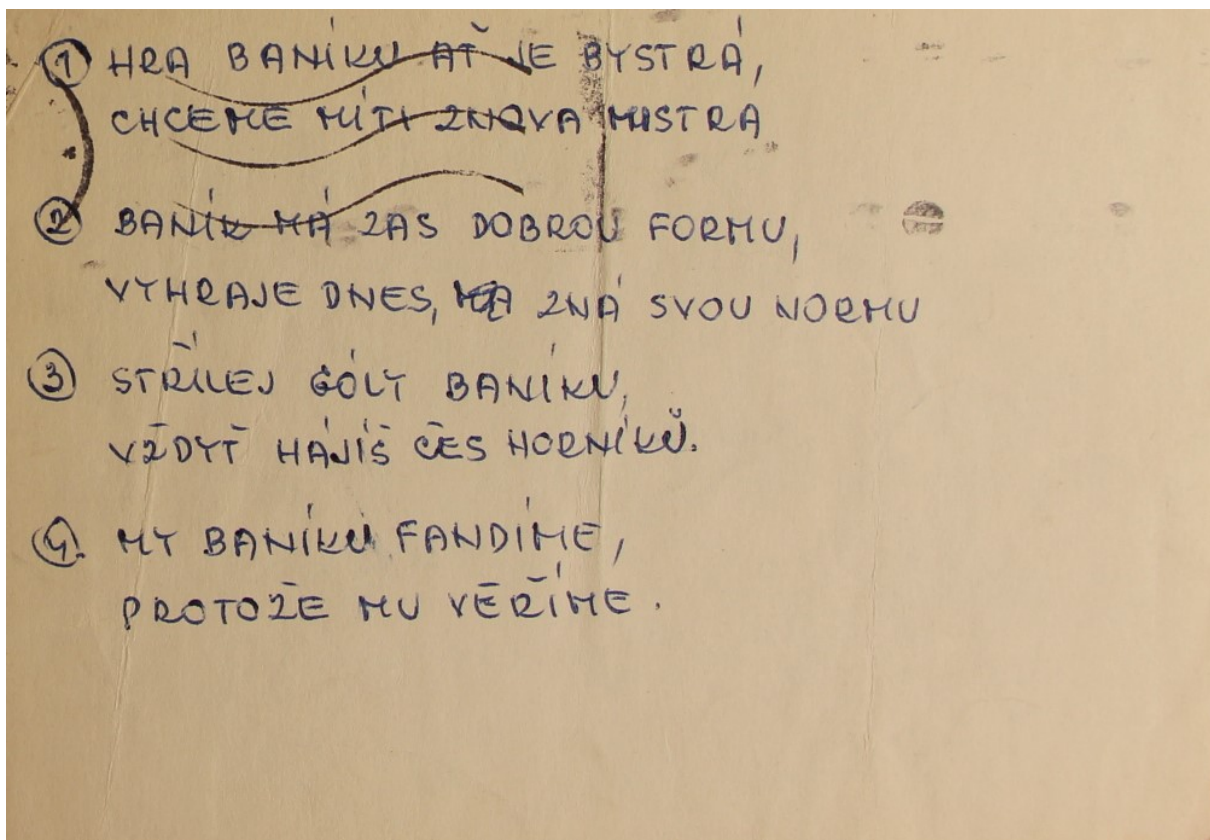 ① HRA BANÍKU AŤ JE BYSTRÁ,
CHCEME MÍTI ZNOVA MISTRA
② BANÍK MÁ ZAS DOBROU FORMU,
VYHRAJE DNES, ZNÁ SVOU NORMU
③ STŘÍLEJ GÓLY BANÍKU,
VŽDYŤ HÁJÍŠ ČES HORNÍKŮ.
④. MY BANÍKU FANDÍME,
PROTOŽE MU VĚŘÍME.